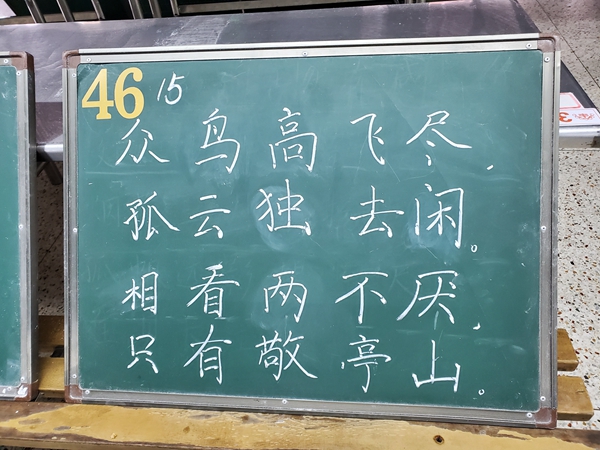 46 15
众鸟高飞尽，
孤云独去闲。
相看两不厌，
只有敬亭山。